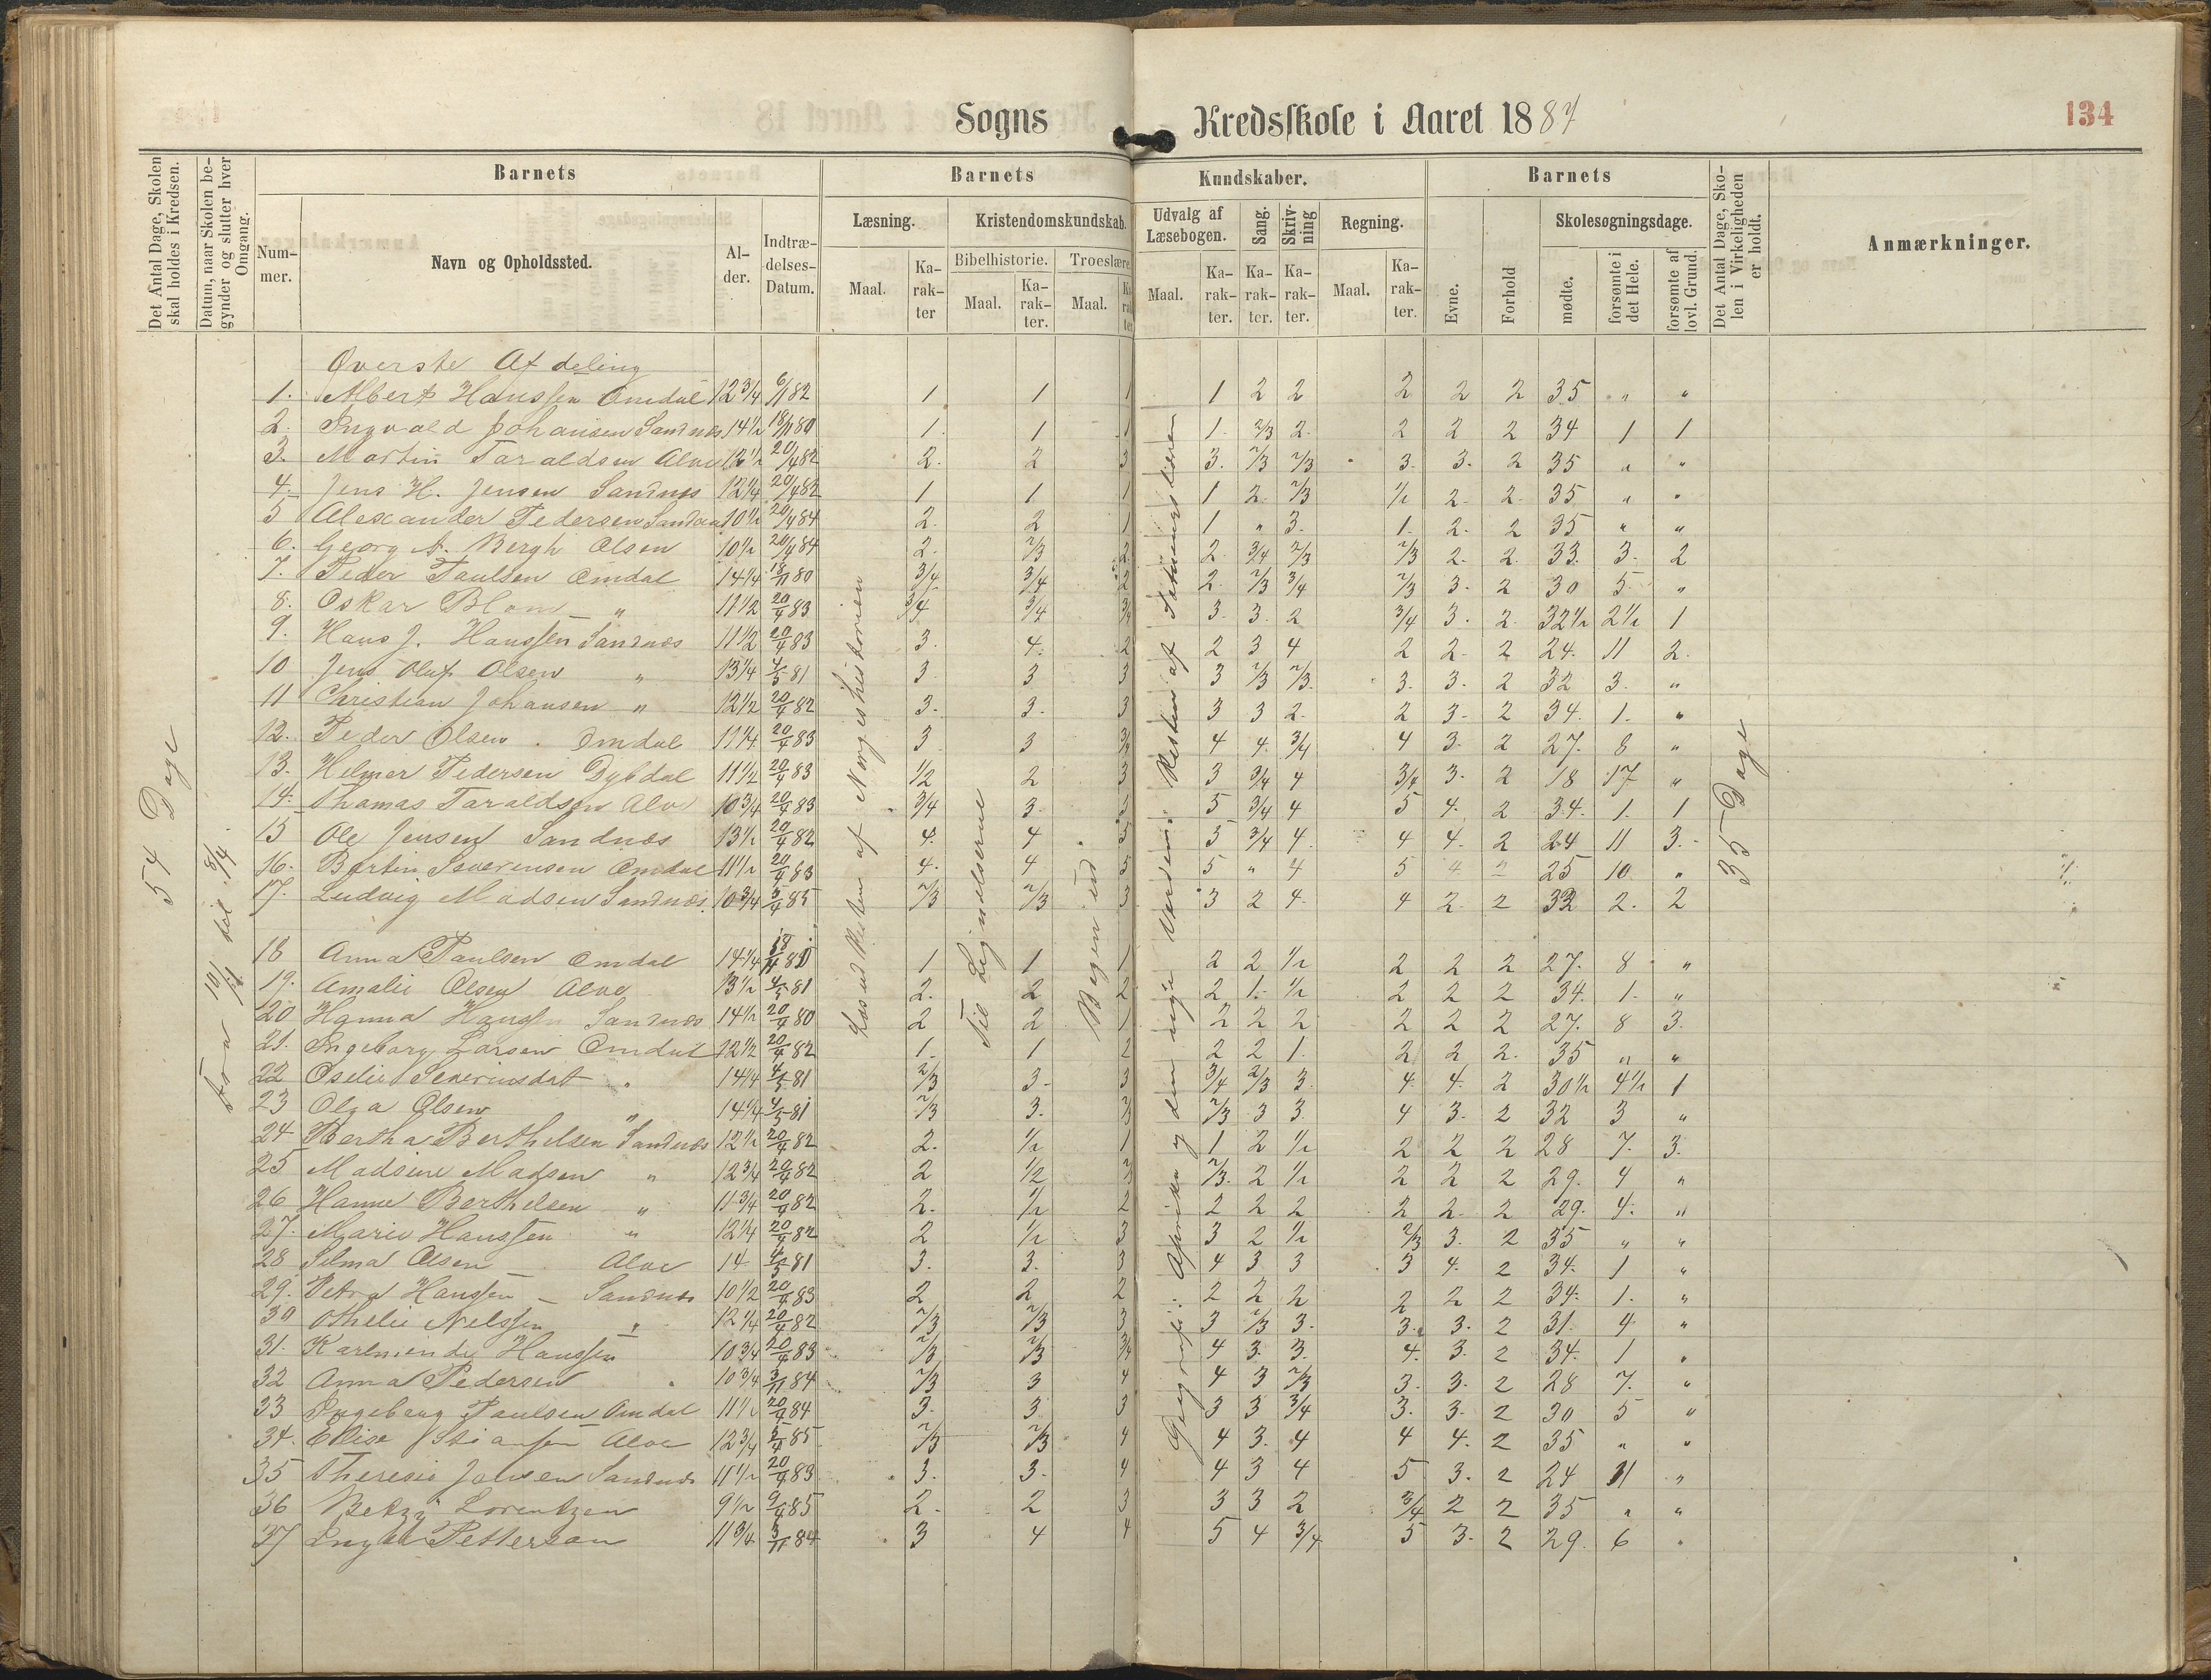 Sogns Kredsskole i Aaret 1887
134
Det Antal Dage, Skolen skal holdes i Kredsen.
Datum, naar Skolen begynder og slutter hver Omgang.
Barnets
Nummer.
Navn og Opholdssted.
Alder.
Indtrædelses-Datum.
Barnets Kundskaber.
Læsning.
Maal.
Karakter
Kristendomskundskab.
Bibelhistorie.
Maal.
Karakter.
Troeslære.
Maal.
Karakter.
Udvalg af Læsebogen.
Maal.
Karakter.
Sang.
Karakter.
Skrivning
Karakter.
Regning.
Maal.
Karakter.
Barnets
Evne.
Forhold
Skolesøgningsdage.
mødte.
forsømte i det Hele.
forsømte af lovl. Grund.
Det Antal Dage, Skolen i Virkeligheden er holdt.
Anmærkninger.
54 Dage
Fra 10/11 til 8/4.
Læst ud Resten af Norgeshistorien
Til Lignelserne
Bogen ud
Geografi: Afrika og den nye Verden. Resten af Sætningslæren
35 Dage
Øverste Afdeling
1. Albert Hanssen Omdal 12 3/4 6/11 82 1 1 1 1 2 2 2 2 2 35 " "
2. Ingvald Johansen Sandnes 14 1/2 18/11 80 1. 1 1 1. 2/3 2. 2 2 2 34 1 1
3. Martin Taraldsen Alve 12 1/2 20/4 82 2. 2 3 3. 2/3 2/3 3. 3. 2 35 " "
4. Jens H. Jensen Sandnes 12 1/4 20/4 82 1 1 1 1 2 2/3 1/2 2. 2. 35 " "
5 Alexander Pedersen Sandnes 10 1/2 20/4 84 2. 2 1 1 " 3. 1. 2. 2 35 " "
6. Georg A. Bergh Olsen 10 1/2 20/4 84 2. 2/3 2 2 3/4 2/3 2/3 2. 2. 33. 3. 2
7. Peder Paulsen Omdal 14 1/4 18/11 80 3/4 3/4 2 2. 2/3 3/4 2/3 3. 2 30 5. "
8. Oskar Blom " 11 1/2 20/4 83 3/4 3/4 3/4 3. 3. 2 3/4 3. 2. 32 1/2 2 1/2 1
9. Hans J. Hanssen Sandnes 11 1/2 20/4 83 3. 4. 2 2 3 4 2 2. 2 24. 11 2.
10 Jens Oluf Olsen " 13 1/4 4/5 81 3 3 3 3 2/3 2/3. 3. 3. 2 32 3. "
11 Christian Johansen " 12 1/2 20/4 82 3. 3. 3 3 3 2. 2 3. 2 34. 1. "
12. Peder Olsen . Omdal 11 1/4 20/4 83 3 3 3/4 4 4. 3/4 4 3. 2 27. 8 "
13. Helmer Pedersen Dybdal 11 1/2 20/4 83 1/2 2 3 3 3/4 4 3/4 3. 2 18 17 "
14. Thomas Taraldsen Alve 10 3/4 20/4 83 3/4 3. 3 5 3/4 4 5 4. 2 34. 1. 1
15 Ole Jensen Sandnes 13 1/2 20/4 82 4. 4 5 5 3/4 4. 4 4. 2 24 11 3.
16. Bertin Severensen Omdal 11 1/2 20/4 83 4. 4 5 5 " 4 5 4 2 25 10. "
17. Ludvig Madsen Sandnes. 10 3/4 5/4 85 2/3 2/3 3 3 2 4. 4 2. 2 33 2. 2
18 Anna Paulsen Omdal 14 1/4 18/11 80 1 1 1 2 2 1/2 2 2 2 27. 8 "
19. Amalie Olsen Alve 13 1/2 4/5 81 2. 2 2 2 1. 1/2 2 2 2 34. 1. "
20 Hanna Hanssen Sandnes 14 1/2 20/4 80 2 2 1 2 2 2 2 2 2 27. 8 3.
21. Ingeborg Larsen Omdal 12 1/2 20/4 82 1. 1 2 2 2 1. 2 2 2. 35 " "
22 Oselie Severinsdat " 14 1/4 4/5 81 2/3 3. 3 3/4 2/3 3. 4. 4. 2 30 1/2 4 1/2 1
23 Olga Olsen " 14 1/4 4/5 81 2/3 3. 2/3 2/3 3 3. 4 3. 2 32 3 "
24 Bertha Berthelsen Sandnes 12 1/2 20/4 82 2. 1/2 1 1 2 1/2 2 2 2 28 7. 3.
25 Madsine Madsen " 12 3/4 20/4 82 2 1/2 2/3 2/3. 2 1/2 2 2 2 29. 4 "
26 Hanne Berthelsen " 11 3/4 20/4 82 2. 1/2 2 2 2 2 2 2. 2 29. 4. "
27. Marie Hanssen " 12 1/4 20/4 82 2 1/2 3 3 2 1/2 2/3 3. 2 35 " "
28 Selma Olsen Alve 14 4/5 81 3. 3. 3 4 3 3 3 4. 2 34. 1 "
29. Petra Hanssen - Sandnes 10 1/2 20/4 83 2 2 2 2 2 2 2 2 2 34. 1. "
30 Othelie Nelssen " 12 1/4 20/4 82 2/3 2/3 3 3 2/3 3. 3. 3. 2 31. 4 "
31. Karlminde Hanssen 10 3/4 20/4 83 2/3 2/3 3/4 4 3. 3. 4. 3. 2 34. 1 "
32 Anna Pedersen " 10 3/4 3/11 84 2/3 3 4 4 3 2/3 3. 3. 2 28 7. "
33 Ingeborg Paulsen Omdal 11 1/2 20/4 84 3. 3 3 3 3 3/4 3. 3. 2 30 5 "
34. Ellise Stiansen Alve 12 3/4 5/4 85 2/3 2/3 4 4 3. 4 4 4. 2 35 " "
35 Theresie Jensen Sandnes 11 1/2 20/4 83 3. 3. 4 4 3 4 5 3. 2 24 11 "
36 Betzy Lorentzen 9 1/2 9/4 85 2. 2 3 3 3 2 3/4 2 2 35 " "
37 Pettersen 11 3/4 3/11 84 3 4 4 5 4 3/4 5 3. 2 29. 6 "